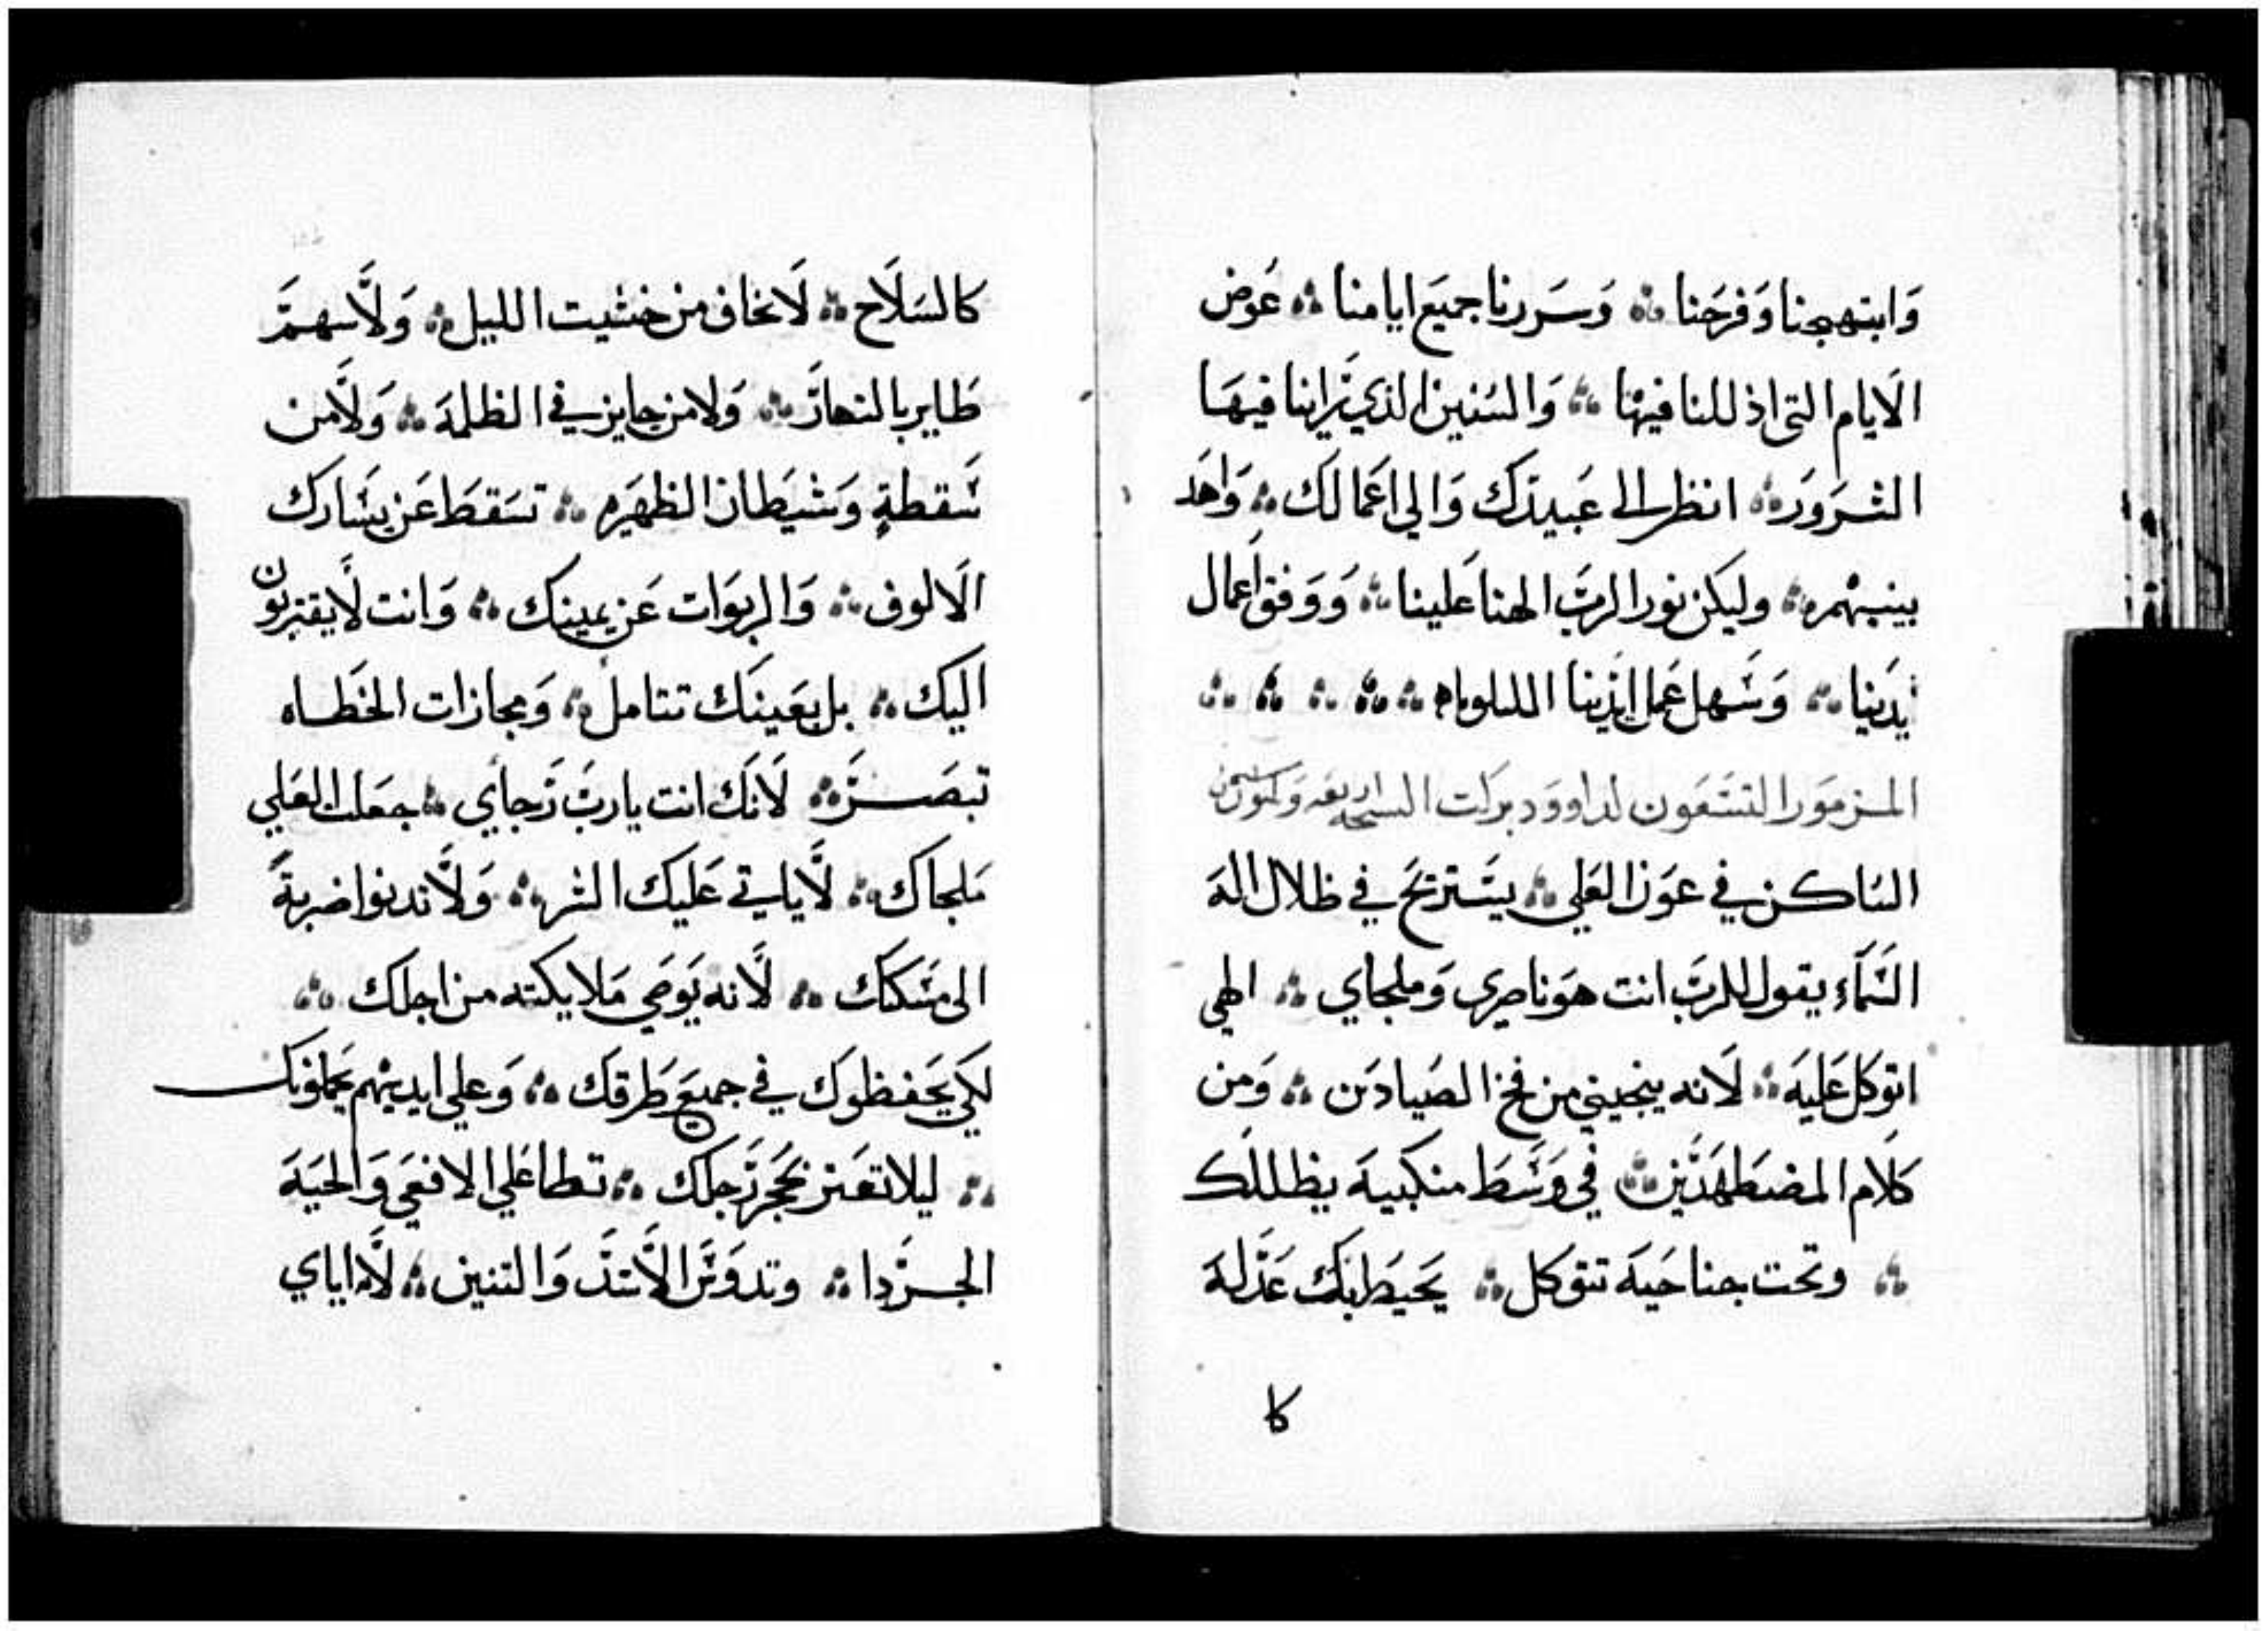 وَابتهجنا وَفرَحنا ⁘ وَسَررنا جميَع ايامنا ⁘ عَوض
الَايام التى اذللنا فيهْا ⁘ وَالسَنين الذي رَاينا فيهَا
الشرَورَ ⁘ انظر الى عَبيدَك وَالى اعَمالك ⁘ وَاهَد
بينيهْم ⁘ وليكن نور الربَ الهنا عَلينا ⁘ وَوَفق اعَمال
يدَينا ⁘ وَسَهل عَمل ايدَينا الليلوياه ⁘ ⁘ ⁘ ⁘ ⁘ ⁘
المزمَور التسَعَون لداووَد بركت
السَاكن في عَون العَلي ⁘ يسَتريَح في ظلال الهَ
السَمَاء يقول للربَ انت هوَ ناصري وَملجاي ⁘ الهي
اتوَكل عَليهَ ⁘ لَانه ينجيني من فخ الصَيادَين ⁘ وَمن
كَلام المضطهدَين ⁘ في وَسَطَ منكبيهَ يظللَك
⁘ وتحت جناحَيهَ تتوَكل ⁘ يَحيَط بَك عَدلهَ
كا
كالسَلَاح ⁘ لَا تخاف من خشيت الليل ⁘ وَلَا سهمَ
طَاير بالنهارَ ⁘ وَلا من جايز في الظلمهَ ⁘ وَلَا من
سَقطةٍ وَشيَطان الظهيَره ⁘ تسَقطَ عَن يسَارك
الَالوف ⁘ وَالربوَات عَن يمينك ⁘ وَانت لَا يقتربون
اليك ⁘ بل بعَينَك تتامل ⁘ وَمجازات الخطَاه
تبصَر ⁘ لَانَك انت ياربَ رَجاي ⁘ جعَلت العَلي
مَلجاك ⁘ لَا ياتي عَليك الشر ⁘ وَلَا تدنوا ضربةَ
الى مسَكنك ⁘ لَانه يَوصَي مَلايكته من اجلك ⁘
لكَي يَحفظوَك في جميَع طَرقَك ⁘ وَعلى ايديهْم يَحملونك
⁘ ليلا تعَثر بحَجر رَجلك ⁘ تطا عَلي الافعَي وَالحيَهَ
الجردا ⁘ وتدوَسَ الَاسَدَ وَالتنين ⁘ لَانه اياي